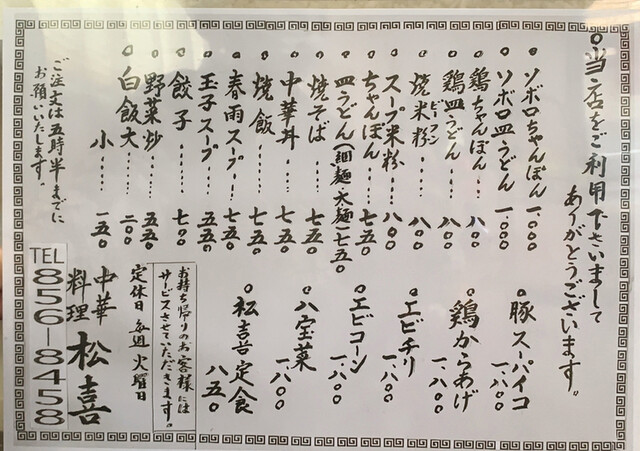 ○当店をご利用下さいまして
ありがとうございます。
○ソボロちゃんぽん 1.000
○ソボロ皿うどん 1.000
○鶏ちゃんぽん… 八〇〇
○鶏皿うどん… 八〇〇
○焼米粉ビーフン… 八〇〇
○スープ米粉… 八〇〇
○ちゃんぽん… 七五〇
○皿うどん(細麺・太麺)七五〇
○焼そば…… 七五〇
○中華丼…… 七五〇
○焼飯…… 七五〇
○春雨スープ…… 七五〇
○玉子スープ…… 五五〇
○餃子…… 七〇〇
○野菜炒…… 五五〇
○白飯大…… 二〇〇
小…… 一五〇
ご注文は五時半までに
お願いいたします。
○豚スーパイコ 1.八〇〇
○鶏からあげ 1.八〇〇
○エビチリ 1.八〇〇
○エビコーン 1.八〇〇
○八宝菜 1.八〇〇
○松喜定食 八五〇
お持ち帰りのお客様には
サービスさせていただきます。
定休日 毎週 火曜日
中華料理 松喜
TEL 856-8458